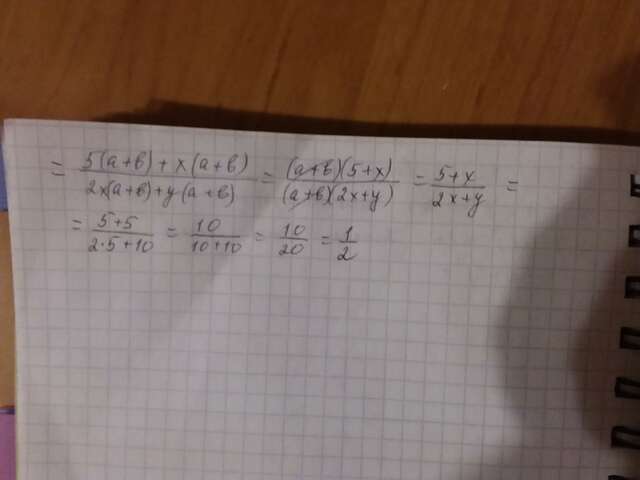 = 5(a+b)+x(a+b) / 2x(a+b)+y(a+b) = (a+b)(5+x) / (a+b)(2x+y) = 5+x / 2x+y =
= 5+5 / 2·5+10 = 10 / 10+10 = 10 / 20 = 1 / 2